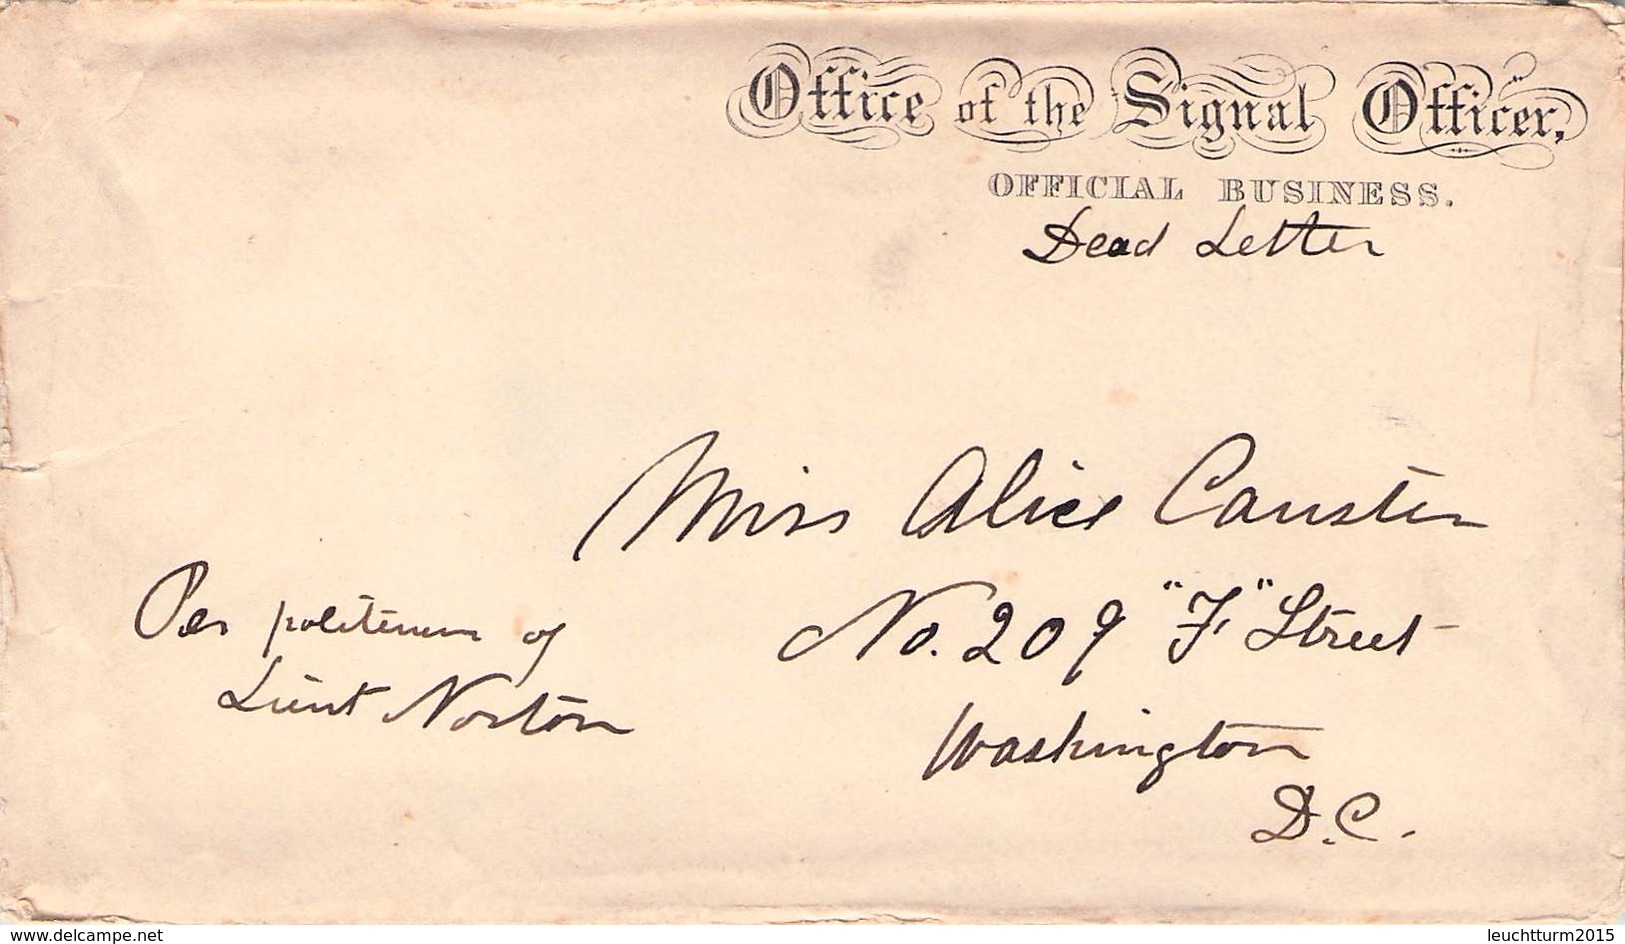 Office of the Signal Officer,
OFFICIAL BUSINESS.
Dead Letter
Miss Alice Causten
No. 209 "F" Street
Washington
D.C.
Per politeness of
Lieut Norton
www.delcampe.net
leuchtturm2015